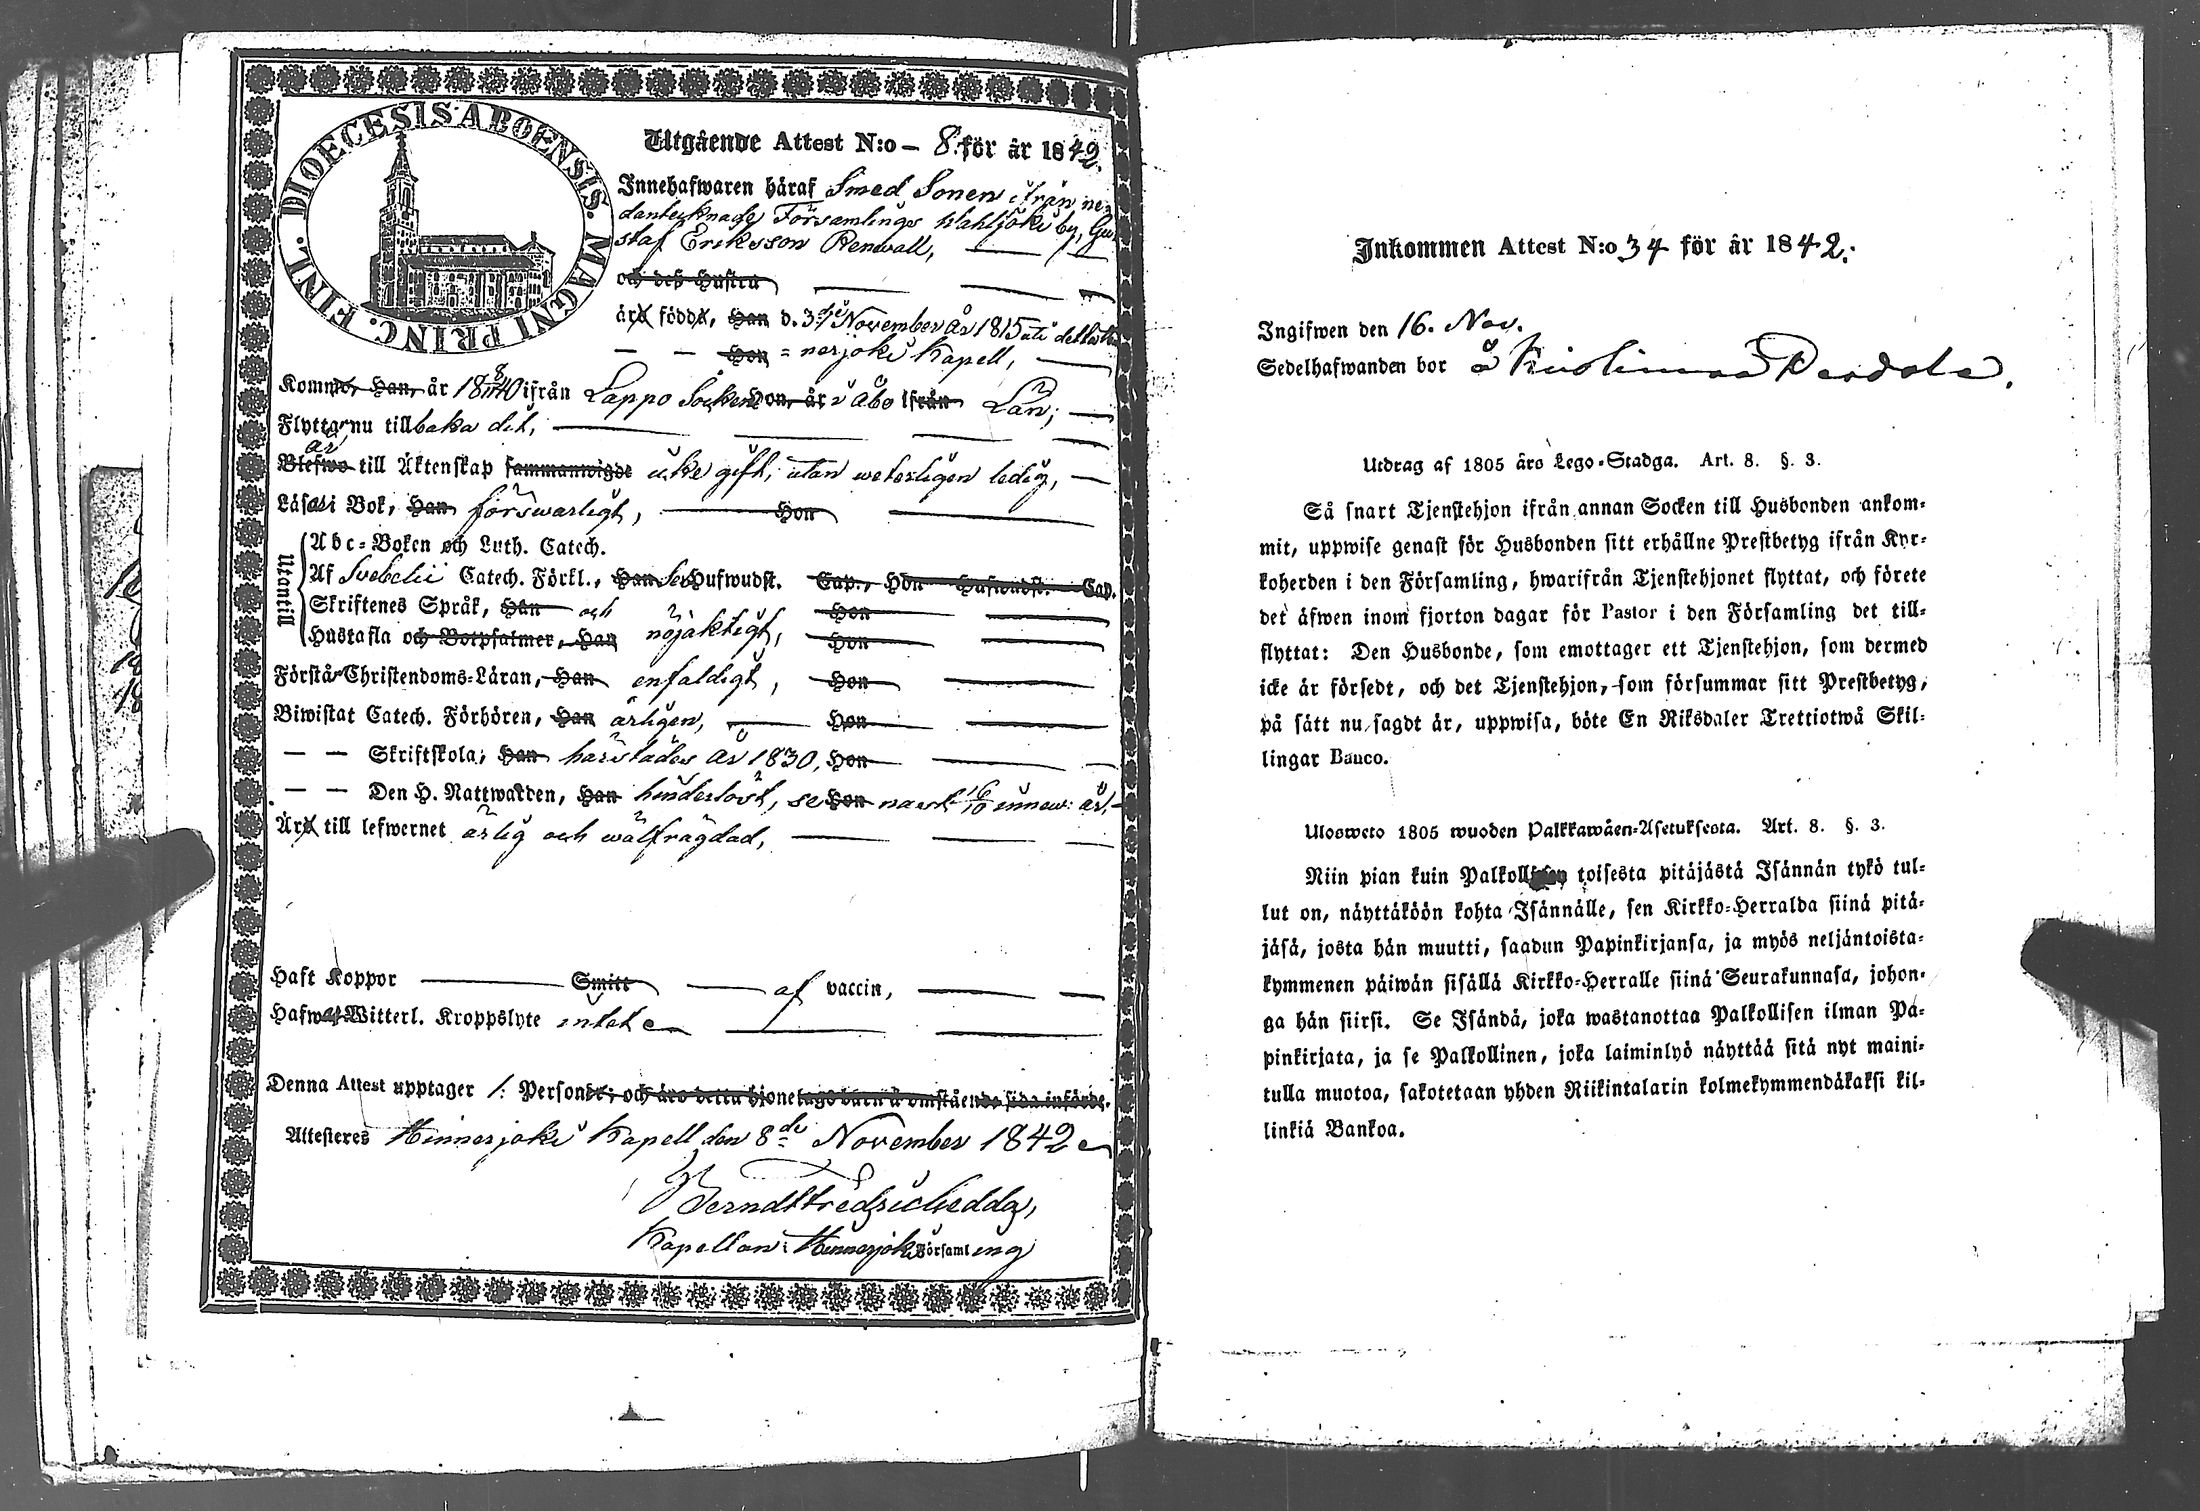 DIOECESIS ABOENSIS. MAGNI PRINC. FINL.
Utgående Attest N:o – 8. för år 1842.
Innehafwaren häraf Smed Sonen ifrån ne-
dantecknade Församlings by, Gu-
staf Eriksson Renwall,
och dess Hustru
äro födda, Han d. November år 1815 uti detta
Hon = nerjoki Kapell,
Kommo, Han, år 18 40 ifrån Lappo Socken Hon, år i Åbo ifrån Län;
Flytta nu tillbaka dit,
är
Blefwo till Äktenskap sammanwigde icke gift, utan weterligen ledig,
Läsa i Bok, Han förswarligt, Hon
Utantill
Abc-Boken och Luth. Catech.
Af Svebelii Catech. Förkl., Han Sex Hufwudst. Cap., Hon Hufwudst. Cap.
Skriftenes Språk, Han och Hon
Hustafla och Botpsalmer, Han nöjaktigt, Hon
Förstår Christendoms-Läran, Han enfaldigt, Hon
Biwistat Catech. Förhören, Han årligen, Hon
— — Skriftskola; Han härstädes år 1830, Hon
— — Den H. Nattwarden, Han hinderlöst, se Hon nast 16/10 innew: år,
Äro till lefwernet ärlig och wälfrägdad,
Haft Koppor Smitt af vaccin,
Hafwa Witterl. Kroppslyte intet
Denna Attest upptager 1. Personer; och äro detta hjonelags barn å omstående sida införde.
Attesteres Hinnerjoki Kapell den 8de November 1842
Berndt Fredric Hedda,
Kapellan i Hinnerjoki Församling
Inkommen Attest N:o 34 för år 1842.
Ingifwen den 16. Nov.
Sedelhafwanden bor å
Utdrag af 1805 års Lego-Stadga. Art. 8. §. 3.
Så snart Tjenstehjon ifrån annan Socken till Husbonden ankom-
mit, uppwise genast för Husbonden sitt erhållne Prestbetyg ifrån Kyr-
koherden i den Församling, hwarifrån Tjenstehjonet flyttat, och förete
det äfwen inom fjorton dagar för Pastor i den Församling det till-
flyttat: Den Husbonde, som emottager ett Tjenstehjon, som dermed
icke är försedt, och det Tjenstehjon, som försummar sitt Prestbetyg,
på sätt nu sagdt är, uppwisa, böte En Riksdaler Trettiotwå Skil-
lingar Banco.
Ulosweto 1805 wuoden Palkkawäen-Asetuksesta. Art. 8. §. 3.
Niin pian kuin Palkollisen toisesta pitäjästä Isännän tykö tul-
lut on, näyttäköön kohta Isännälle, sen Kirkko-Herralda siinä pitä-
jäsä, josta hän muutti, saadun Papinkirjansa, ja myös neljäntoista-
kymmenen päiwän sisällä Kirkko-Herralle siinä Seurakunnasa, johon-
ga hän siirsi. Se Isändä, joka wastanottaa Palkollisen ilman Pa-
pinkirjata, ja se Palkollinen, joka laiminlyö näyttää sitä nyt maini-
tulla muotoa, sakotetaan yhden Riikintalarin kolmekymmendäkaksi kil-
linkiä Bankoa.